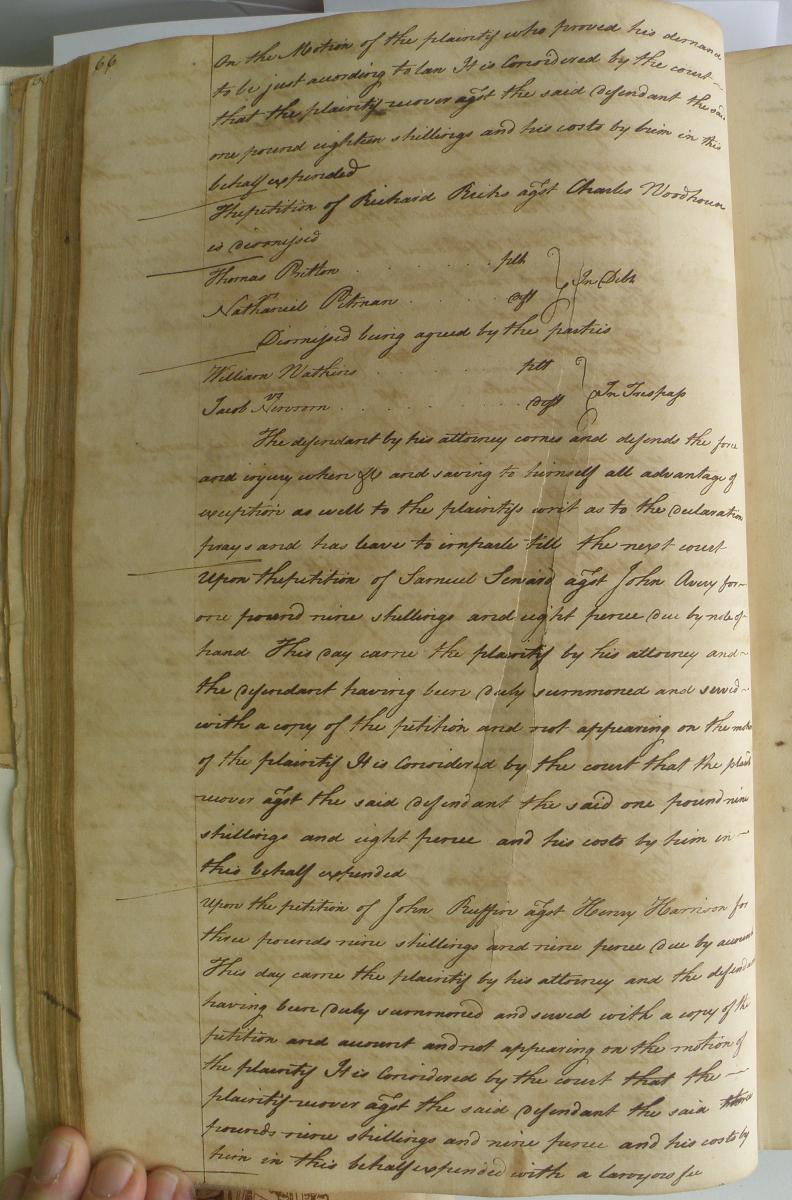 66
On the Motion of the plaintif who proved his demand
to be just according to law It is Considered by the court
that the plaintif recover agst the said defendant the said
one pound eighteen shillings and his costs by him in this
behalf expended
The petition of Richard Ricks agst Charles Woodhouse
is dismissed
Thomas Britton plt
vs In Debt
Nathaniel Pitman deft
Dismissed being agreed by the parties
William Watkins plt
vs In Trespass
Jacob Newsom deft
The defendant by his attorney comes and defends the force
and injury when &c and saving to himself all advantage of
exception as well to the plaintifs writ as to the declaration
prays and has leave to imparle till the next court
Upon the petition of Samuel Seward agst John Avery for
one pound nine shillings and eight pence due by note of
hand This day came the plaintif by his attorney and
the defendant having been duly summoned and served
with a copy of the petition and not appearing on the motion
of the plaintif It is Considered by the court that the plaintif
recover agst the said defendant the said one pound nine
shillings and eight pence and his costs by him in
this behalf expended
Upon the petition of John Ruffin agst Henry Harrison for
three pounds nine shillings and nine pence due by account
This day came the plaintif by his attorney and the defendant
having been duly summoned and served with a copy of the
petition and account and not appearing on the motion of
the plaintif It is Considered by the court that the
plaintif recover agst the said defendant the said three
pounds nine shillings and nine pence and his costs by
him in this behalf expended with a lawyers fee